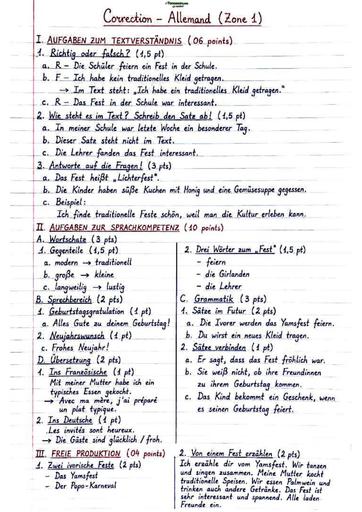 Correction - Allemand (Zone 1)
I. AUFGABEN ZUM TEXTVERSTÄNDNIS (06 points)
1. Richtig oder falsch? (1,5 pt)
a. R - Die Schüler feiern ein Fest in der Schule.
b. F - Ich habe kein traditionelles Kleid getragen.
→ Im Text steht: „Ich habe ein traditionelles Kleid getragen."
c. R - Das Fest in der Schule war interessant.
2. Wie steht es im Text? Schreib den Satz ab! (1,5 pt)
a. In meiner Schule war letzte Woche ein besonderer Tag.
b. Dieser Satz steht nicht im Text.
c. Die Lehrer fanden das Fest interessant.
3. Antworte auf die Fragen! (3 pts)
a. Das Fest heißt „Lichterfest".
b. Die Kinder haben süße Kuchen mit Honig und eine Gemüsesuppe gegessen.
c. Beispiel:
Ich finde traditionelle Feste schön, weil man die Kultur erleben kann.
II. AUFGABEN ZUR SPRACHKOMPETENZ (10 points)
A. Wortschatz (3 pts)
1. Gegenteile (1,5 pt)
a. modern → traditionell
b. große → kleine
c. langweilig → lustig
B. Sprechbereich (2 pts)
1. Geburtstagsgratulation (1 pt)
a. Alles Gute zu deinem Geburtstag!
2. Neujahrswunsch (1 pt)
c. Frohes Neujahr!
D. Übersetzung (2 pts)
1. Ins Französische (1 pt)
Mit meiner Mutter habe ich ein
typisches Essen gekocht.
→ Avec ma mère, j'ai préparé
un plat typique.
2. Ins Deutsche (1 pt)
Les invités sont heureux.
→ Die Gäste sind glücklich / froh.
2. Drei Wörter zum „Fest" (1,5 pt)
- feiern
- die Girlanden
- die Lehrer
C. Grammatik (3 pts)
1. Sätze im Futur (2 pts)
a. Die Ivorer werden das Yamsfest feiern.
b. Du wirst ein neues Kleid tragen.
2. Sätze verbinden (1 pt)
a. Er sagt, dass das Fest fröhlich war.
b. Sie weiß nicht, ob ihre Freundinnen
zu ihrem Geburtstag kommen.
c. Das Kind bekommt ein Geschenk, wenn
es seinen Geburtstag feiert.
III. FREIE PRODUKTION (04 points)
1. Zwei ivorische Feste (2 pts)
- Das Yamsfest
- Der Popo-Karneval
2. Von einem Fest erzählen (2 pts)
Ich erzähle dir vom Yamsfest. Wir tanzen
und singen zusammen. Meine Mutter kocht
traditionelle Speisen. Wir essen Palmwein und
trinken auch andere Getränke. Das Fest ist
sehr interessant und spannend. Alle laden
Freunde ein.